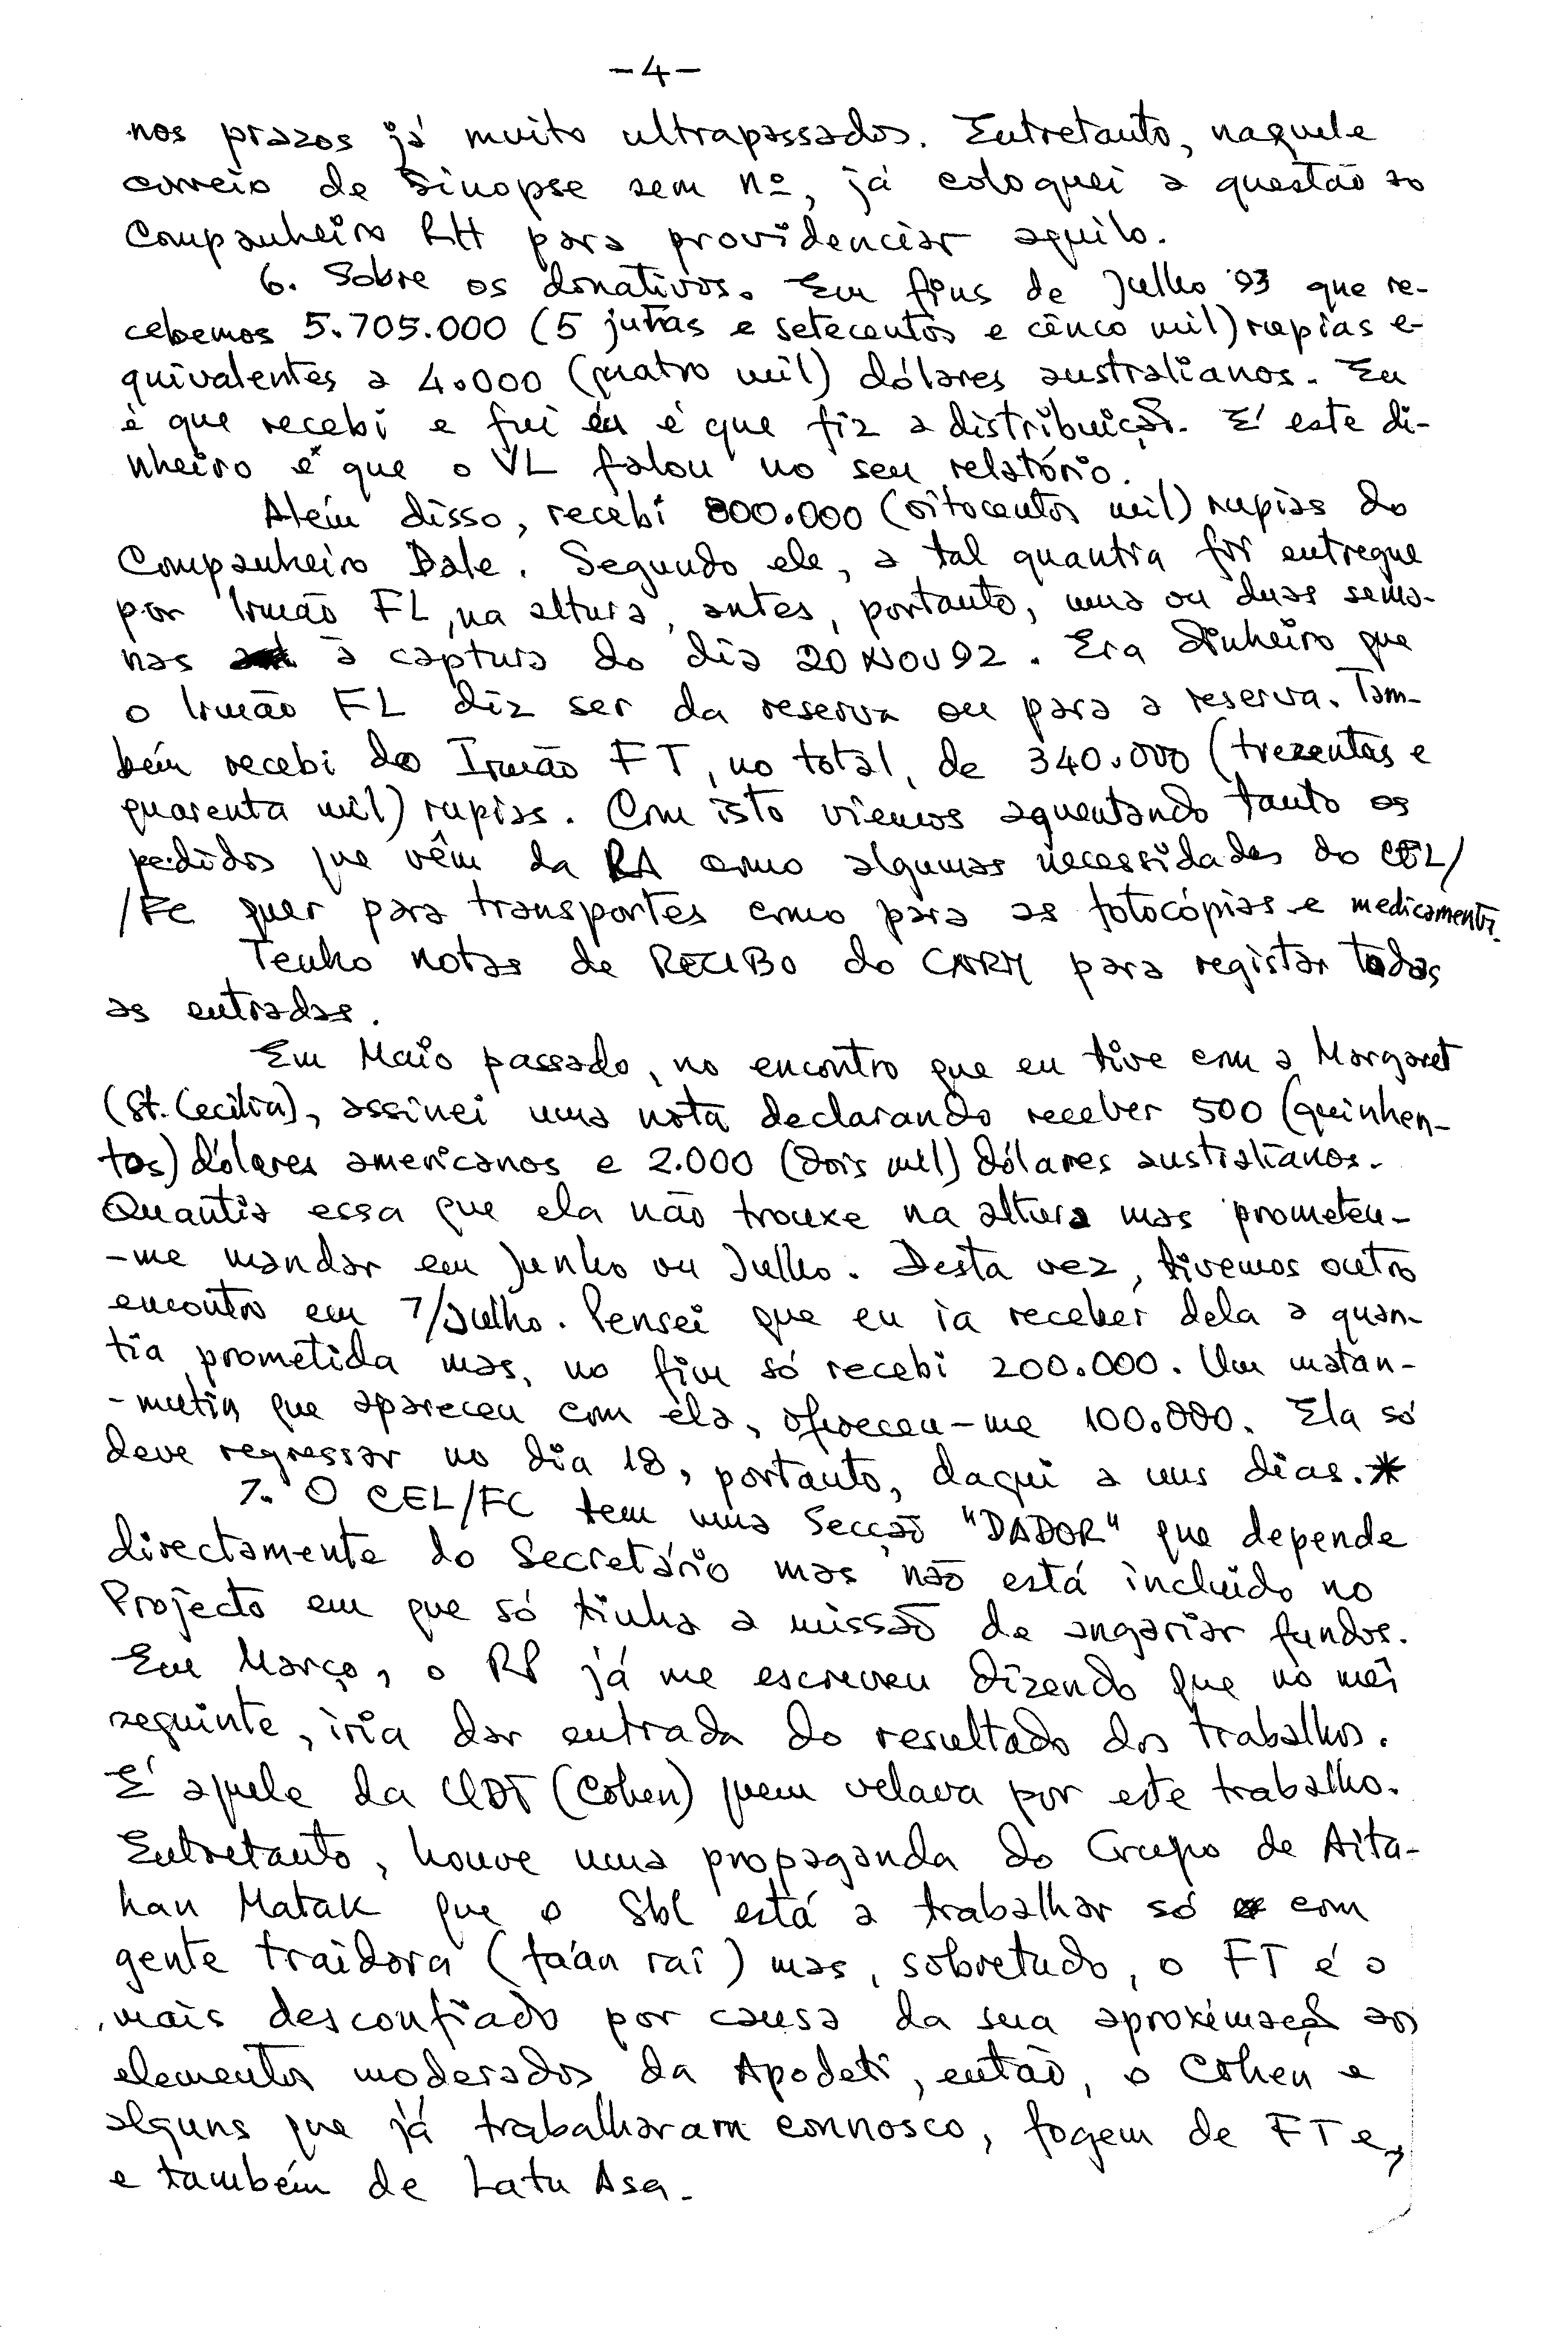 -4-
nos prazos já muito ultrapassados. Entretanto, naquele
correio de Sinopse sem nº, já coloquei a questão ao
Companheiro RH para providenciar aquilo.
6. Sobre os donativos. Em fins de Julho '93 que re-
cebemos 5.705.000 (5 jutas e setecentos e cinco mil) rupias e-
quivalentes a 4.000 (quatro mil) dólares australianos. Eu
é que recebi e fui eu é que fiz a distribuição. É este di-
nheiro é que o VL falou no seu relatório.
Além disso, recebi 800.000 (oitocentos mil) rupias do
Companheiro Dale. Segundo ele, a tal quantia foi entregue
por Irmão FL, na altura, antes, portanto, uma ou duas sema-
nas à captura do dia 20 NOV 92. Era dinheiro que
o Irmão FL diz ser da reserva ou para a reserva. Tam-
bém recebi do Irmão FT, no total, de 340.000 (trezentas e
quarenta mil) rupias. Com isto viemos aguentando tanto os
pedidos que vêm da RA como algumas necessidades do CEL/
/FC quer para transportes como para as fotocópias e medicamentos.
Tenho notas de RECIBO do CNRM para registar todas
as entradas.
Em Maio passado, no encontro que eu tive com a Margaret
(St. Cecilia), assinei uma nota declarando receber 500 (quinhen-
tos) dólares americanos e 2.000 (dois mil) dólares australianos.
Quantia essa que ela não trouxe na altura mas prometeu-
-me mandar em Junho ou Julho. Desta vez, tivemos outro
encontro em 7/Julho. Pensei que eu ia receber dela a quan-
tia prometida mas, no fim só recebi 200.000. Um matan-
-mutin que apareceu com ela, ofereceu-me 100.000. Ela só
deve regressar no dia 18, portanto, daqui a uns dias.*
7. O CEL/FC tem uma Secção "DADOR" que depende
directamente do Secretário mas não está incluído no
Projecto em que só tinha a missão de angariar fundos.
Em Março, o RP já me escreveu dizendo que no mês
seguinte, iria dar entrada do resultado dos trabalhos.
É aquele da UDT (Cohen) quem velava por este trabalho.
Entretanto, houve uma propaganda do Grupo de Aita-
han Matak que o Sbl está a trabalhar só com
gente traidora (faán rai) mas, sobretudo, o FT é o
mais desconfiado por causa da sua aproximação aos
elementos moderados da Apodeti, então, o Cohen e
alguns que já trabalharam connosco, fogem de FT e,
e também de Latu Asa.